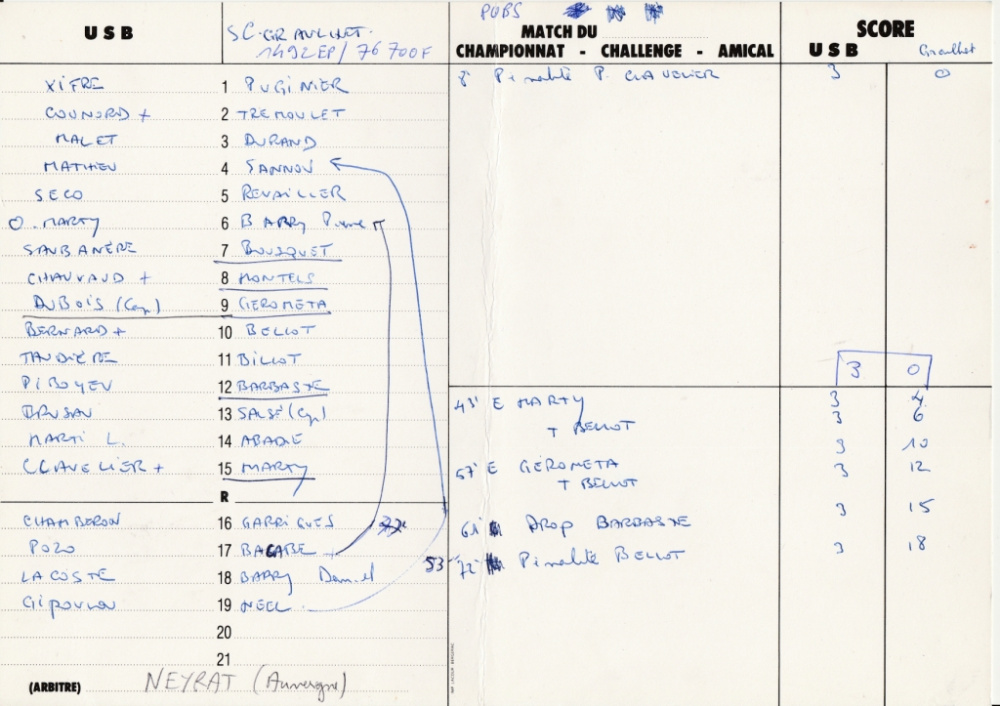 USB
SC GRAULHET
1492 EP / 76 700F
XIFRE 1 PUGINIER
COUNORD + 2 TREMOULET
MALET 3 DURAND
MATHIEU 4 SANNOU
SECO 5 REVAILLER
O. MARTY 6 BARRY Pierre
SAUBANERE 7 BOUSQUET
CHAUVAUD + 8 MONTELS
DUBOIS (Cap) 9 GEROMETA
BERNARD + 10 BELLOT
TAUDIERE 11 BILLOT
PIBOYEU 12 BARBASTE
BRUSAN 13 SALSÉ (Cap)
MARTI L. 14 ABADIE
CLAVELIER + 15 MARTY
R
CHAMBERON 16 GARRIGUES
POZO 17 BACABE
LACOSTE 18 BARRY Daniel
GIPOULOU 19 NEEL
20
21
(ARBITRE) NEYRAT (Auvergne)
PUBS
MATCH DU
CHAMPIONNAT - CHALLENGE - AMICAL
SCORE
USB Graulhet
8' Pénalité P. CLAVELIER 3 0
3 0
43' E MARTY 3 4
T BELLOT 3 6
57' E GÉROMETA 3 10
T BELLOT 3 12
61' DROP BARBASTE 3 15
53 72' Pénalité BELLOT 3 18